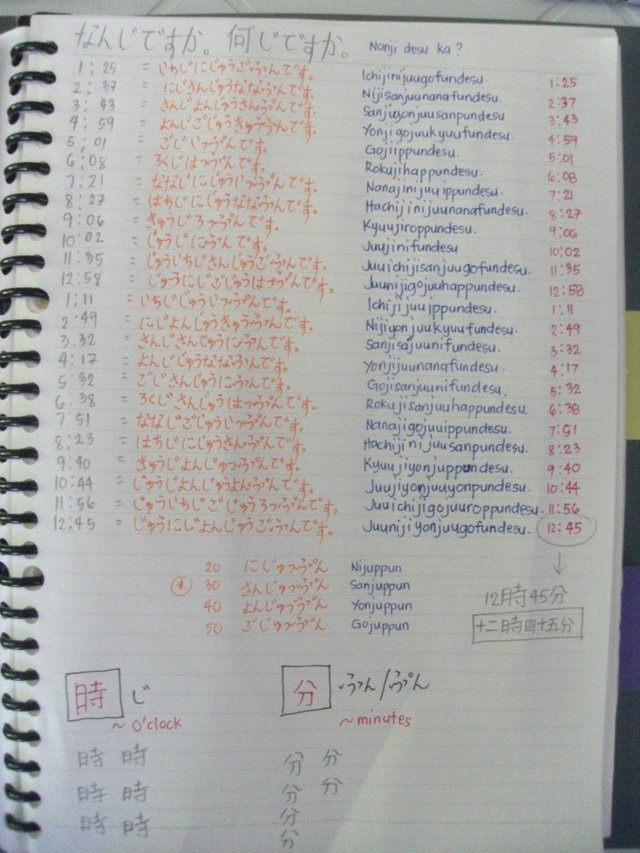 なんじですか。何じですか。 Nanji desu ka?
1:25 = いちじにじゅうごふんです。 Ichijinijuugofundesu. 1:25
2:37 = にじさんじゅうななふんです。 Nijisanjuunanafundesu. 2:37
3:43 = さんじよんじゅうさんぷんです。 Sanjiyonjuusanpundesu. 3:43
4:59 = よんじごじゅうきゅうふんです。 Yonjigojuukyuufundesu. 4:59
5:01 = ごじいっぷんです。 Gojiippundesu. 5:01
6:08 = ろくじはっぷんです。 Rokujihappundesu. 6:08
7:21 = ななじにじゅういっぷんです。 Nanajinijuuippundesu. 7:21
8:27 = はちじにじゅうななふんです。 Hachijinijuunanafundesu. 8:27
9:06 = きゅうじろっぷんです。 Kyuujiroppundesu. 9:06
10:02 = じゅうじにふんです。 Juujinifundesu 10:02
11:35 = じゅういちじさんじゅうごふんです。 Juuichijisanjuugofundesu. 11:35
12:58 = じゅうにじごじゅうはっぷんです。 Juunijigojuuhappundesu. 12:58
1:11 = いちじじゅういっぷんです。 Ichijijuuippundesu. 1:11
2:49 = にじよんじゅうきゅうふんです。 Nijiyonjuukyuufundesu. 2:49
3:32 = さんじさんじゅうにふんです。 Sanjisajuunifundesu. 3:32
4:17 = よんじじゅうななふんです。 Yonjijuunanafundesu. 4:17
5:32 = ごじさんじゅうにふんです。 Gojisanjuunifundesu. 5:32
6:38 = ろくじさんじゅうはっぷんです。 Rokujisanjuuhappundesu. 6:38
7:51 = ななじごじゅういっぷんです。 Nanajigojuuippundesu. 7:51
8:23 = はちじにじゅうさんぷんです。 Hachijinijuusanpundesu. 8:23
9:40 = きゅうじよんじゅっぷんです。 Kyuujiyonjuppundesu. 9:40
10:44 = じゅうじよんじゅうよんぷんです。 Juujiyonjuuyonpundesu. 10:44
11:56 = じゅういちじごじゅうろっぷんです。 Juuichijigojuuroppundesu. 11:56
12:45 = じゅうにじよんじゅうごふんです。 Juunijiyonjuugofundesu. 12:45
20 にじゅっぷん Nijuppun
30 さんじゅっぷん Sanjuppun
40 よんじゅっぷん Yonjuppun
50 ごじゅっぷん Gojuppun
12時45分
十二時四十五分
時 じ
~ o'clock
分 ふん/ぷん
~ minutes
時 時 分 分
時 時 分 分
時 時 分
分